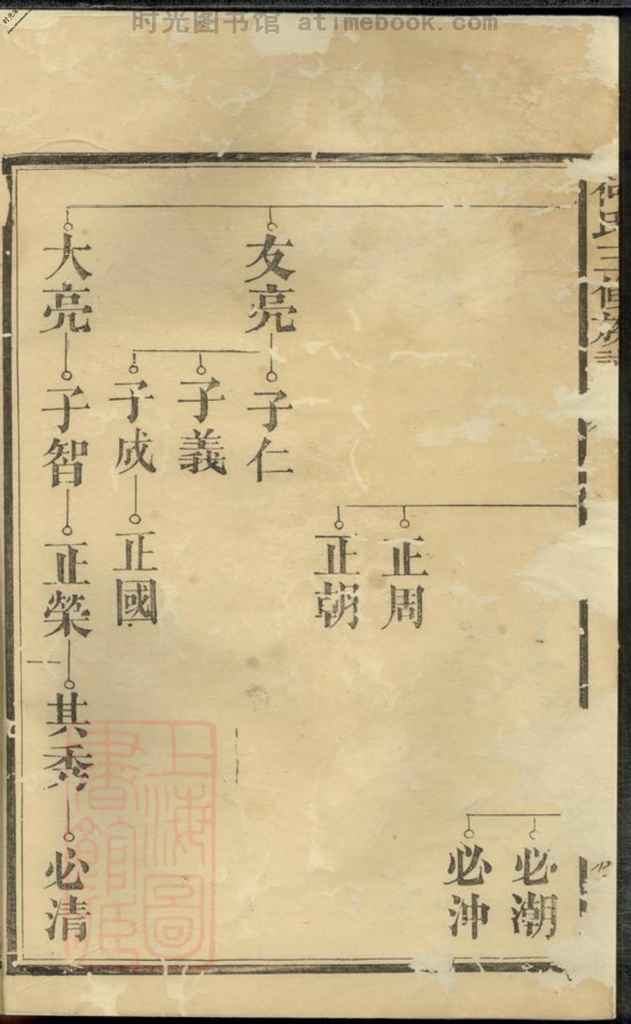 时光图书馆 atimebook.com
何氏三修族譜
必潮
必沖
正周
正朝
友亮
子仁
子義
子成
正國
大亮
子智
正榮
其秀
必清
上海圖
書館藏